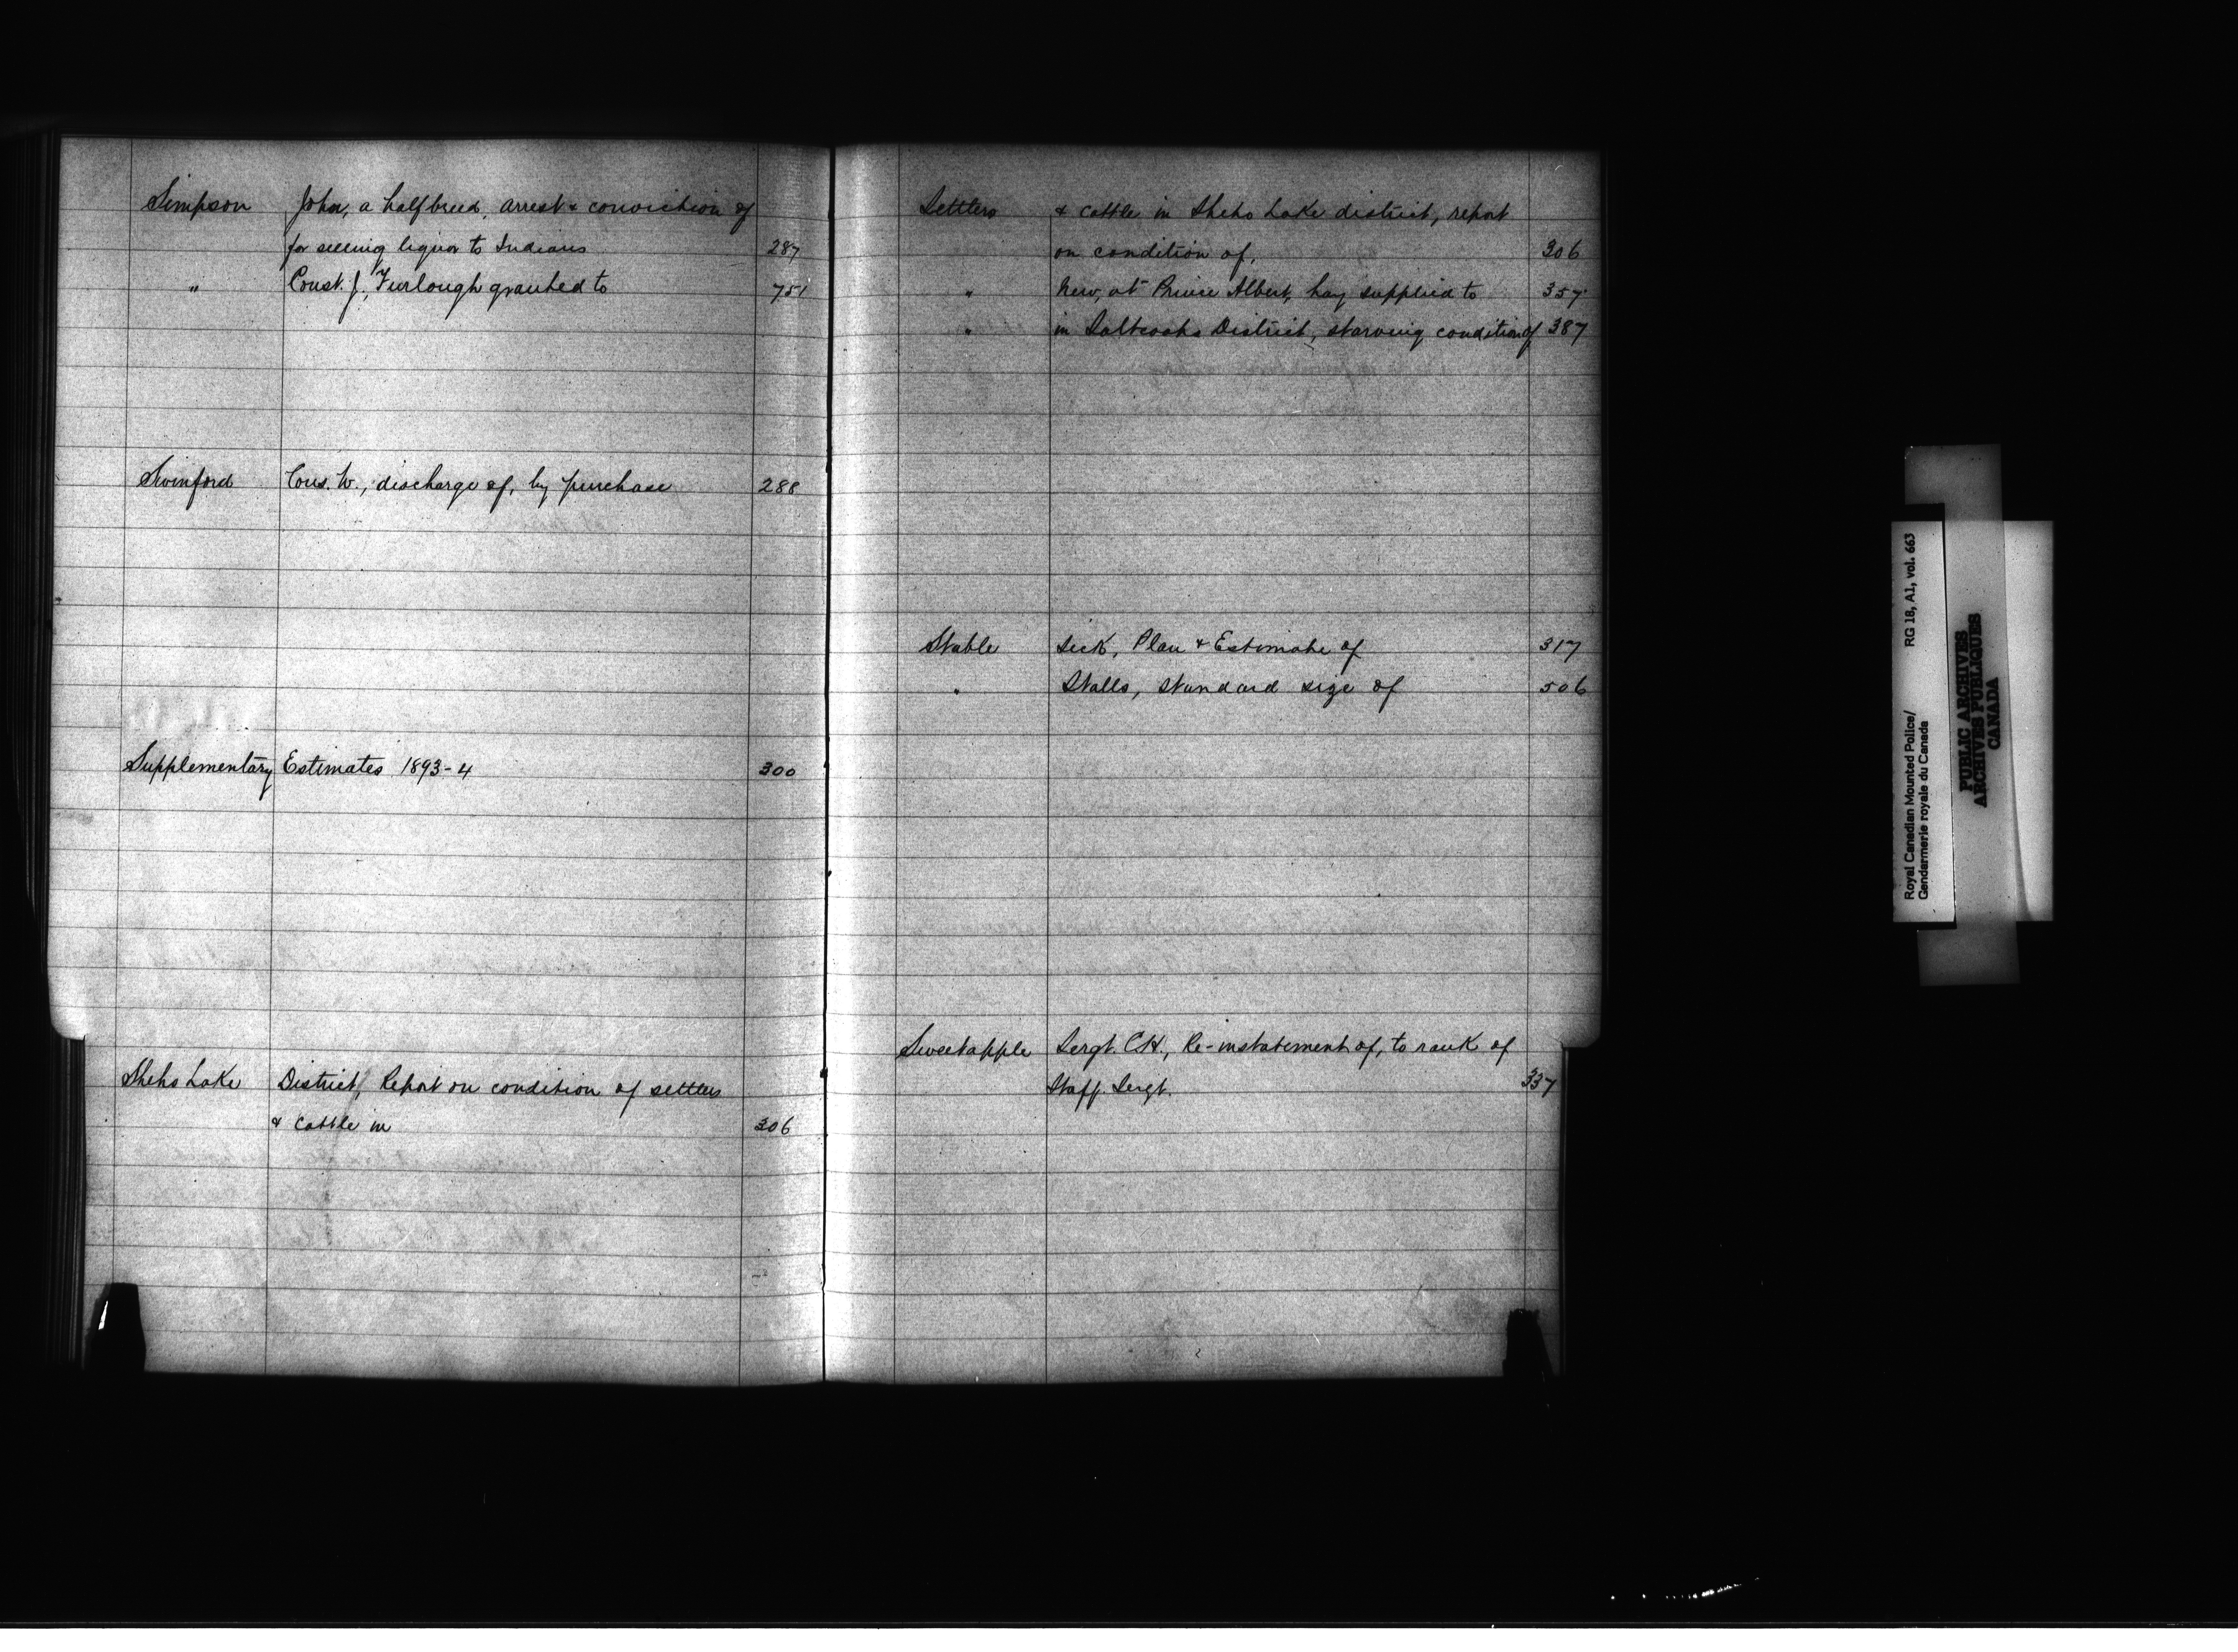 Simpson John, a halfbreed, arrest & conviction of
for selling liquor to Indians 287
" Const. J., Furlough granted to 751
Swinford Cons. W., discharge of, by purchase 288
Supplementary Estimates 1893-4 300
Sheho Lake District, Report on condition of settlers
& Cattle in 306
Settlers & cattle in Sheho Lake district, report
on condition of, 306
" New, at Prince Albert, hay supplied to 357
" in Saltcoats District, starving condition of 387
Stable Sick, Plan & Estimate of 317
" Stalls, standard size of 506
Sweetapple Sergt. C.H., Re-instatement of, to rank of
Staff. Sergt. 337
Royal Canadian Mounted Police/ RG 18, A1, vol. 663
Gendarmerie royale du Canada
PUBLIC ARCHIVES
ARCHIVES PUBLIQUES
CANADA